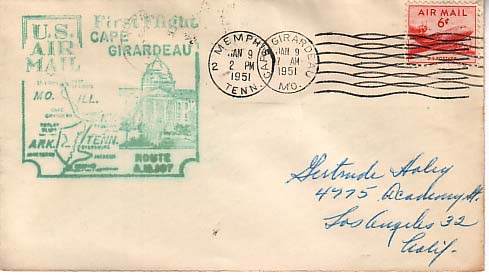 U.S.
AIR
MAIL
First Flight
CAPE
GIRARDEAU
MO. ILL.
ARK. TENN.
ROUTE
MEMPHIS
JAN 9
2 PM
1951
TENN.
2
CAPE GIRARDEAU
JAN 9
AM
1951
MO.
AIR MAIL
6¢
Gertrude Holey
4975 Academy St.
Los Angeles 32
Calif.